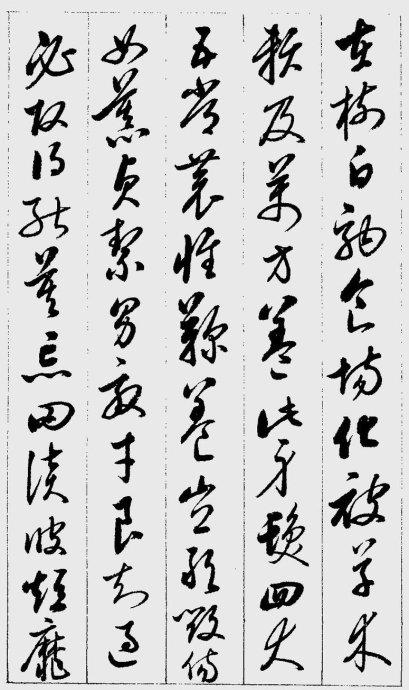 在樹白駒食場化被草木
賴及萬方蓋此身髮四大
五常恭惟鞠養豈敢毀傷
女慕貞絜男效才良知過
必改得能莫忘罔談彼短靡